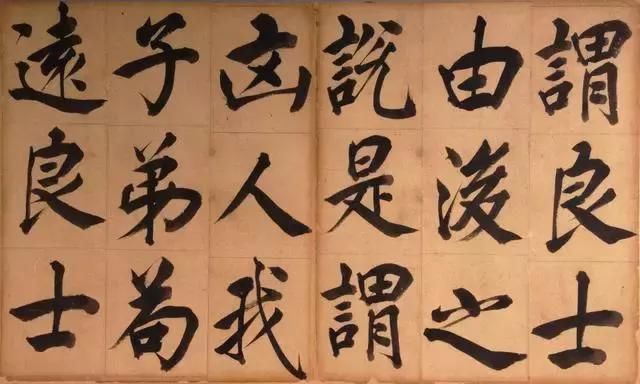 謂良士
由後之
説是謂
凶人我
子弟苟
遠良士